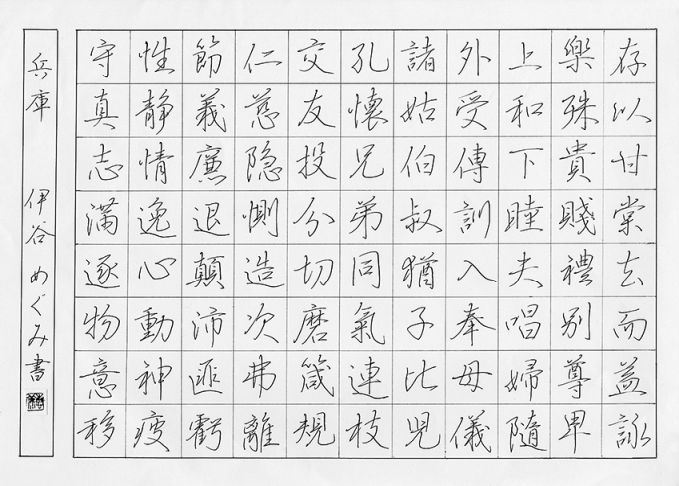 存以甘棠去而益詠
樂殊貴賤禮別尊卑
上和下睦夫唱婦隨
外受傅訓入奉母儀
諸姑伯叔猶子比兒
孔懷兄弟同氣連枝
交友投分切磨箴規
仁慈隐惻造次弗離
節義廉退顛沛匪虧
性静情逸心動神疲
守真志滿逐物意移
兵庫 伊谷めぐみ書